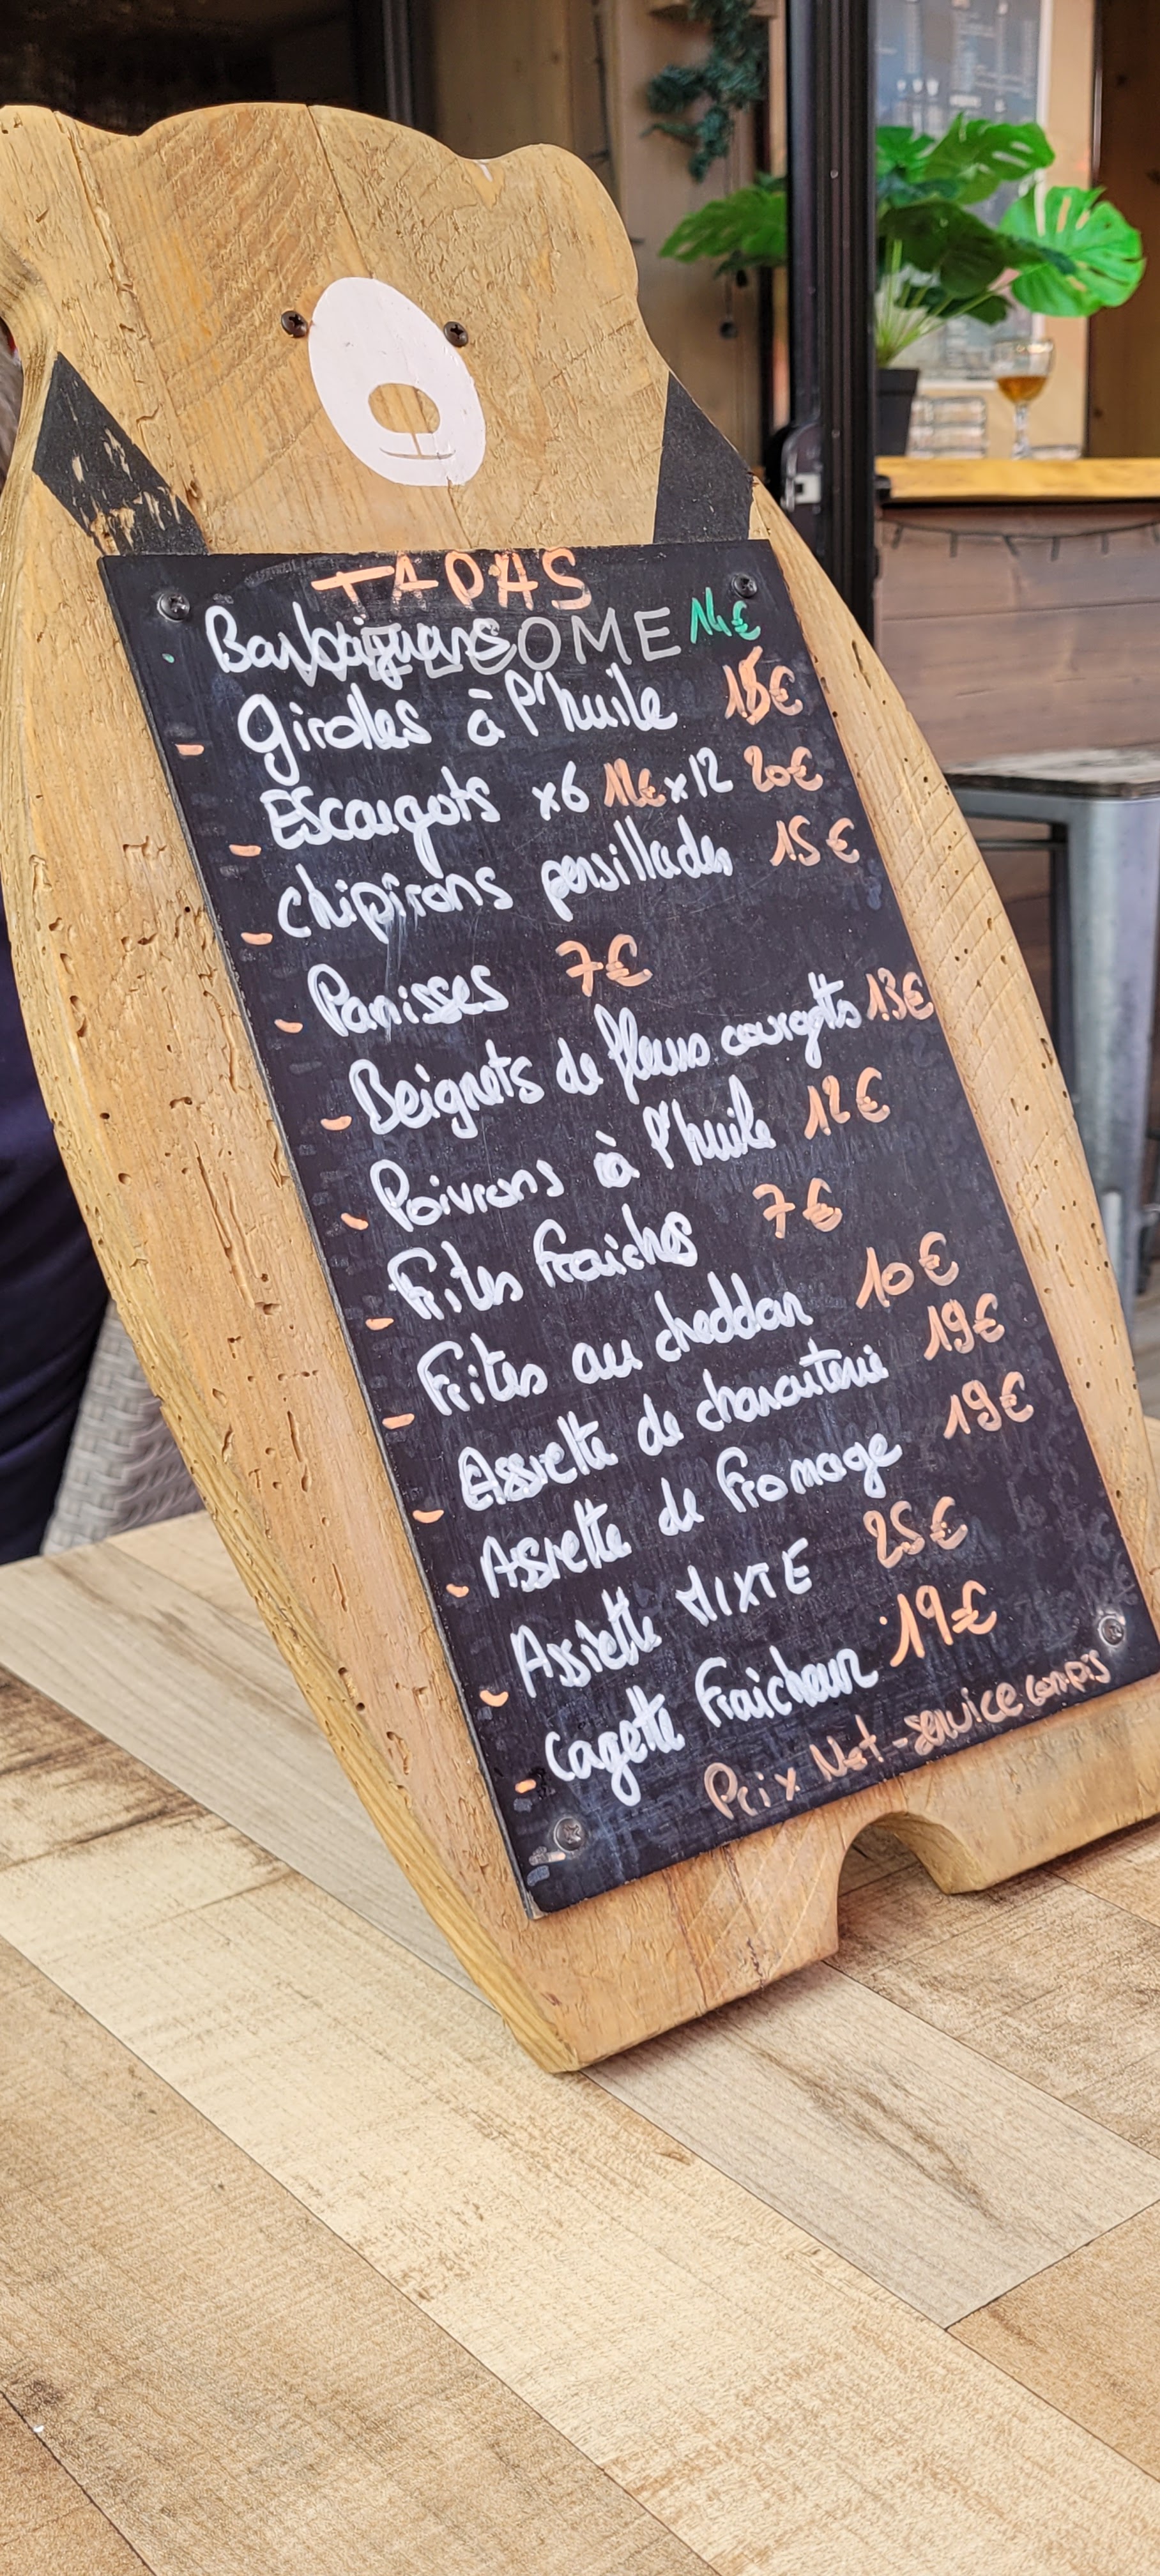 TAPAS
WELCOME
Barbaguans 14€
Girolles à l'huile 15€
Escargots x6 12€ x12 20€
chipirons persillades 15€
Panisses 7€
Beignets de fleurs courgetts 13€
Poivrons à l'huile 12€
Frites fraiches 7€
Frites au cheddar 10€
Assiette de charcuterie 19€
Assiette de fromage 19€
Assiette MIXTE 25€
cagette Fraicheur 19€
Prix Net-service compris